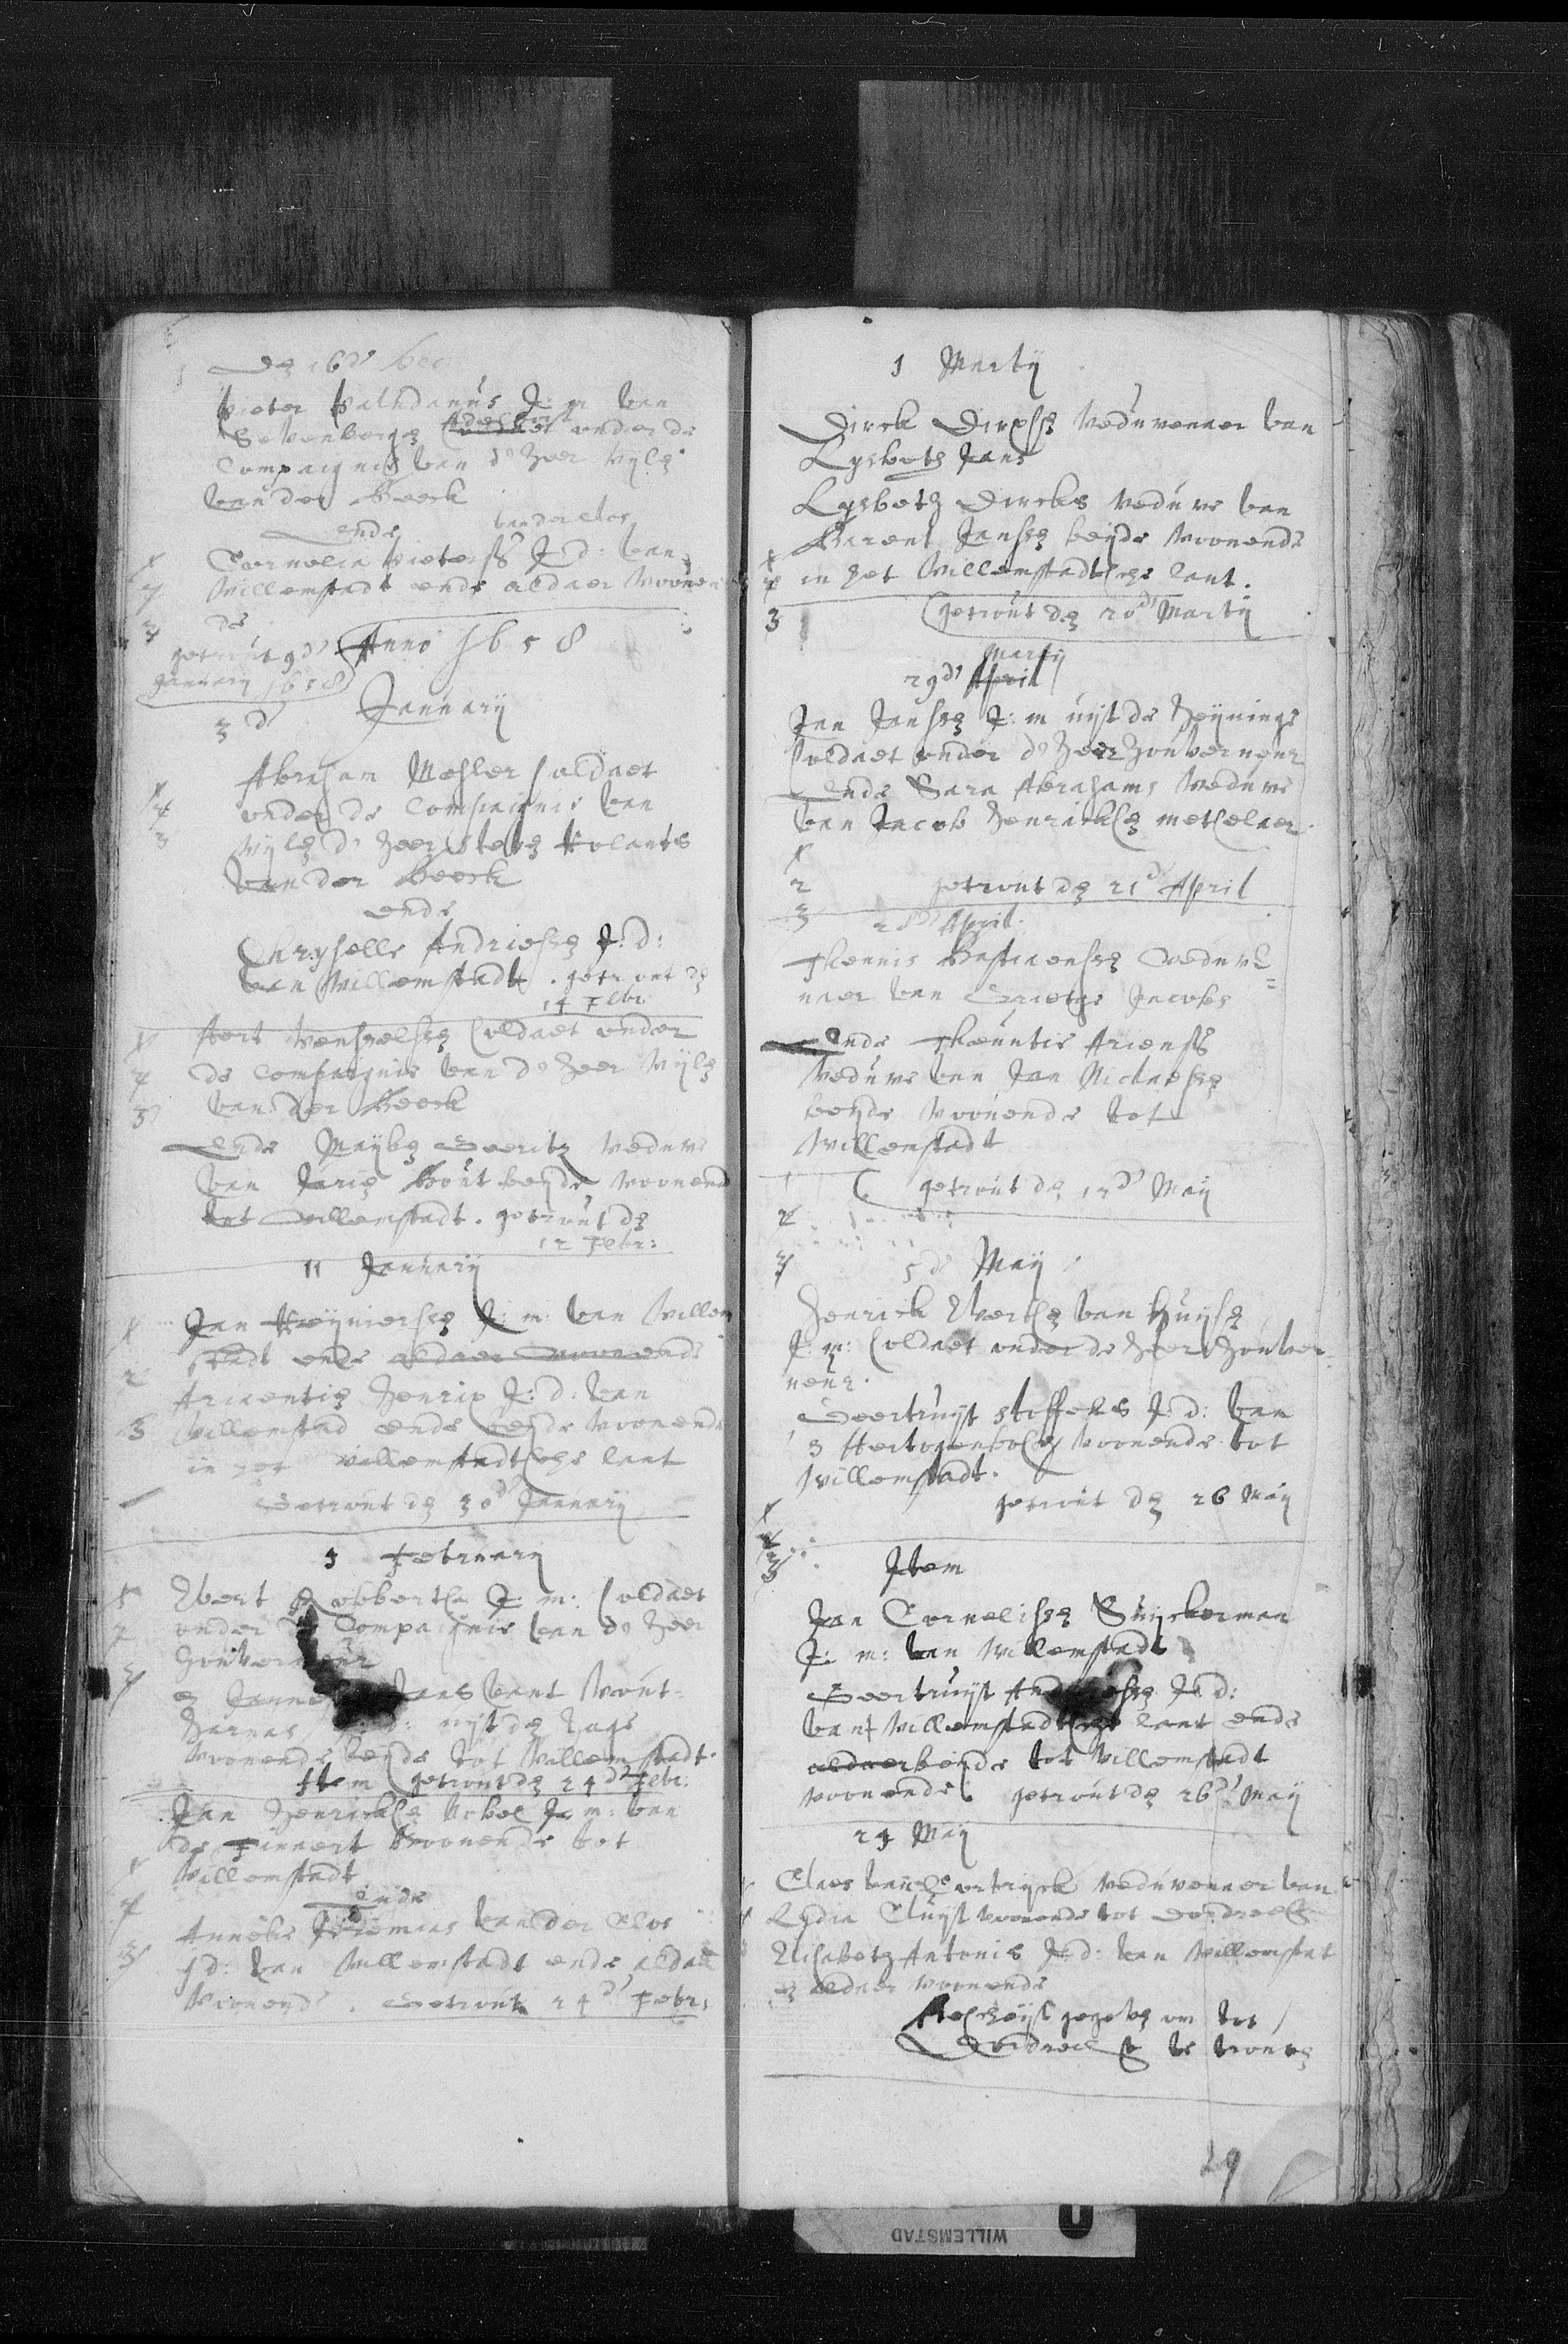 Pieter Paludanus J: m van
Sevenberge Adelborst onder de
Compaignie van d'heer Wijle
van der Beeck
ende van der clos
Cornelia Pieterss J: d: van
Willemstadt ende aldaer woonen
de
getrout 9d'
January 1658
Anno 1658
3 d' January
Abraham soldaet
onder de Compaignie van
Wijle d' heer
van der Beeck
ende
Andriesse J: d:
van Willemstadt . getrout de
14 Febr:
Aert Wensselsse soldaet onder
de Compaignie van d' heer Wijle
van der Beeck
Ende Maijke Geerits weduwe
van Bout beyde woonend
tot Willemstadt . getrout de
12 Febr:
11 January
Jan Reyniersse J: m: van Willem
stadt ende aldaer woonende
Ariaentie Henrix J: d: van
Willemstad ende beyde woonende
in het Willemstadtsche lant
Getrout de 30d' January
3 February
Evert Robbertse J: m: soldaet
onder de Compaignie van d' heer
Gouverneur
e Janne Jans vant Wout
Harnas J: d: uijt de hage
woonende beyde tot Willemstadt.
Item getrout de 24d' Febr:
Jan Henrickse Nobel J: m: van
de Finaert woonende tot
Willemstadt
Ende
Anneke van der Clos
J d: van Willemstadt ende aldaer
woonende . Getrout 24d' Febr:
1 Martij
Dirck Dirxsse weduwenaer van
Lysbeth Jans
Lysbeth Dircks weduwe van
Barent Jansse beyde woonende
in het Willemstadtsche lant.
getrout de 20d' Martij
Martij
29d' April
Jan Janse J: m uijt de Heyninge
soldaet onder d' heer Gouverneur
Ende Sara Abrahams weduwe
van Jacob Henrickse metselaer.
getrout de 21d' April
28d' April.
Theunis Bastiaensse weduwe
naer van Grietge Jacobs
Ende Theuntie Ariensse
weduwe van Jan Niclaesse
beyde woonende tot
Willemstadt
getrout de 12d' Maij
5d' Maij
Henrick Evertse van Huijse
J: m: soldaet onder de heer Gouver-
neur.
Geertruijt Stoffels J: d: van
s Hertogenbosch woonende tot
Willemstadt.
getrout de 26 Maij
Item
Jan Cornelisse Suijckerman
J: m: van Willemstadt
Geertruijt Andriesse J: d:
vant Willemstadtsche lant ende
aldaer beyde tot Willemstadt
woonende. getrout de 26d' Maij
24 Maij
Claes van Cortrijck weduwenaer van
Lydia Cluijt woonende tot Dordrecht
Elisabeth Antonis J: d: van Willemstat
e aldaer woonende
Attestatie gegeve om tot
Dordrecht te trouwe
29
WILLEMSTAD